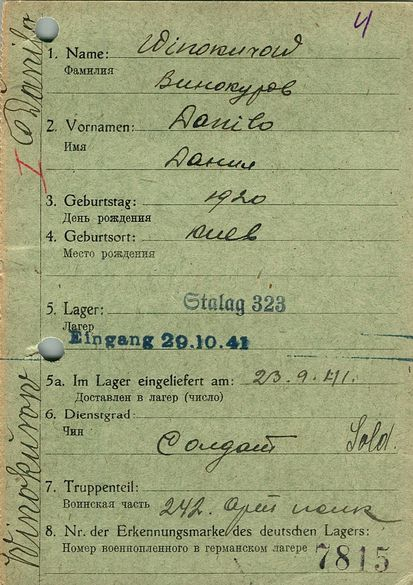 4
1. Name: Winokurow
Фамилия
Винокуров
2. Vornamen: Danilo
Имя
Данил
3. Geburtstag: 1920
День рождения
4. Geburtsort: Киев
Место рождения
5. Lager: Stalag 323
Лагер
Eingang 29.10.41
5a. Im Lager eingeliefert am: 23.9.41.
Доставлен в лагер (число)
6. Dienstgrad:
Чин
Солдат Sold.
7. Truppenteil:
Воинская часть 242. Арт полк
8. Nr. der Erkennungsmarke des deutschen Lagers:
Номер военнопленного в германском лагере 7815
Winokurow
Danilo